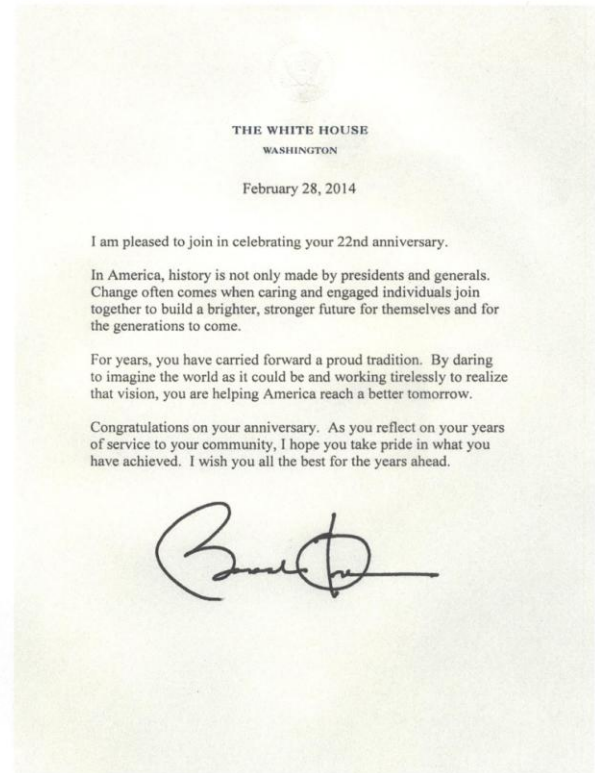 THE WHITE HOUSE
WASHINGTON
February 28, 2014
I am pleased to join in celebrating your 22nd anniversary.
In America, history is not only made by presidents and generals.
Change often comes when caring and engaged individuals join
together to build a brighter, stronger future for themselves and for
the generations to come.
For years, you have carried forward a proud tradition. By daring
to imagine the world as it could be and working tirelessly to realize
that vision, you are helping America reach a better tomorrow.
Congratulations on your anniversary. As you reflect on your years
of service to your community, I hope you take pride in what you
have achieved. I wish you all the best for the years ahead.